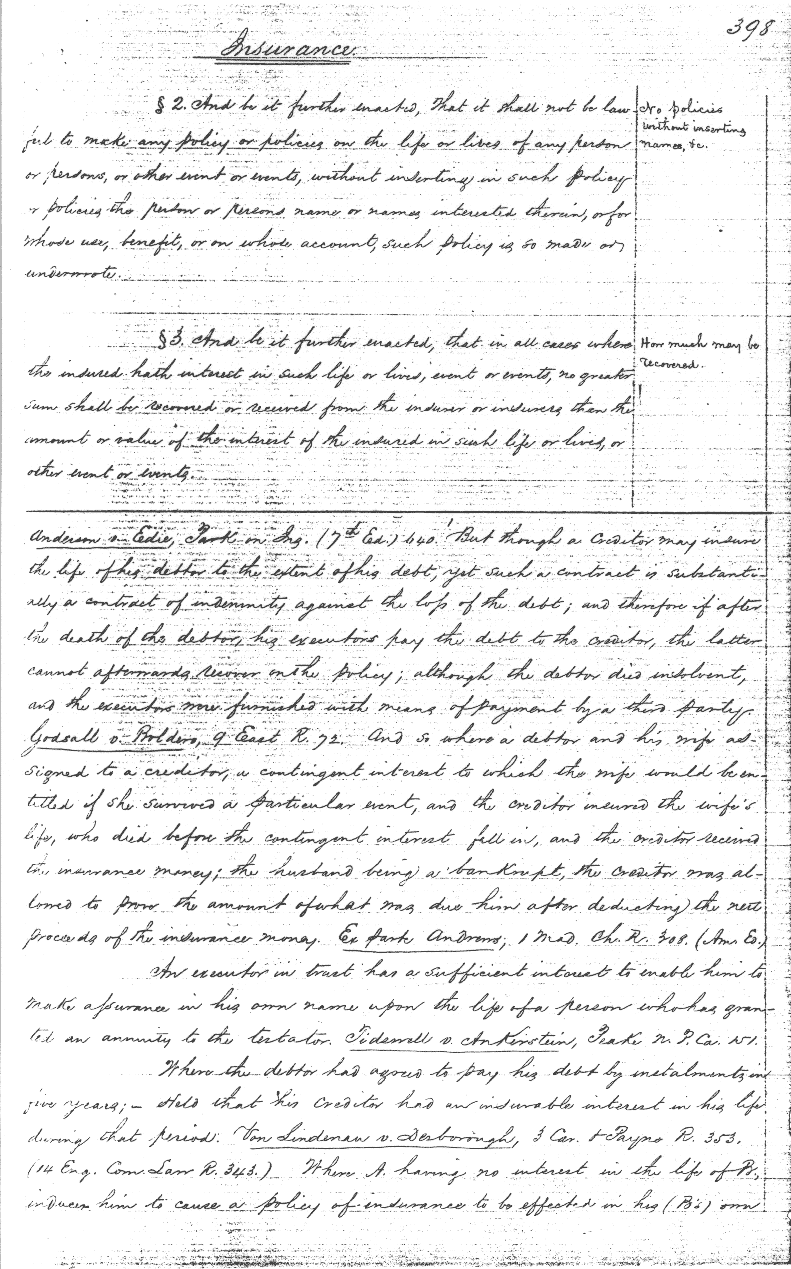 398
Insurance.
§ 2. And be it further enacted, That it shall not be law-
ful to make any policy or policies on the life or lives of any person
or persons, or other event or events, without inserting in such policy
or policies the person or persons name or names interested therein, or for
whose use, benefit, or on whose account, such policy is so made or
underwrote.
No policies
without inserting
names, &c.
§ 3. And be it further enacted, that in all cases where
the insured hath interest in such life or lives, event or events, no greater
sum shall be recovered or received from the insurer or insurers than the
amount or value of the interest of the insured in such life or lives, or
other event or events.
How much may be
recovered.
Anderson v. Edie, Park on Ins. (7th Ed.) 640. But though a Creditor may insure
the life of his debtor to the extent of his debt, yet such a contract is substanti-
ally a contract of indemnity against the loss of the debt; and therefore if after
the death of the debtor, his executors pay the debt to the creditor, the latter
cannot afterwards recover on the policy; although the debtor died insolvent,
and the executors were furnished with means of payment by a third party
Godsall v. Boldero, 9 East R. 72. And so where a debtor and his wife as-
signed to a creditor, a contingent interest to which the wife would be en-
titled if she survived a particular event, and the creditor insured the wife's
life, who died before the contingent interest fell in, and the creditor received
the insurance money; the husband being a bankrupt, the creditor was al-
lowed to prove the amount of what was due him after deducting the nett
proceeds of the insurance money. Ex parte Andrews, 1 Mad. Ch. R. 308. (Am. Ed.)
An executor in trust has a sufficient interest to enable him to
make assurance in his own name upon the life of a person who has gran-
ted an annuity to the testator. Tidswell v. Ankerstein, Peake N. P. Ca. 151.
Where the debtor had agreed to pay his debt by instalments in
five years; – Held that his creditor had an insurable interest in his life
during that period. Von Lindenau v. Desborough, 3 Car. & Payne R. 353.
(14 Eng. Com. Law R. 343.) Where A. having no interest in the life of B.,
induces him to cause a policy of insurance to be effected in his (B's) own